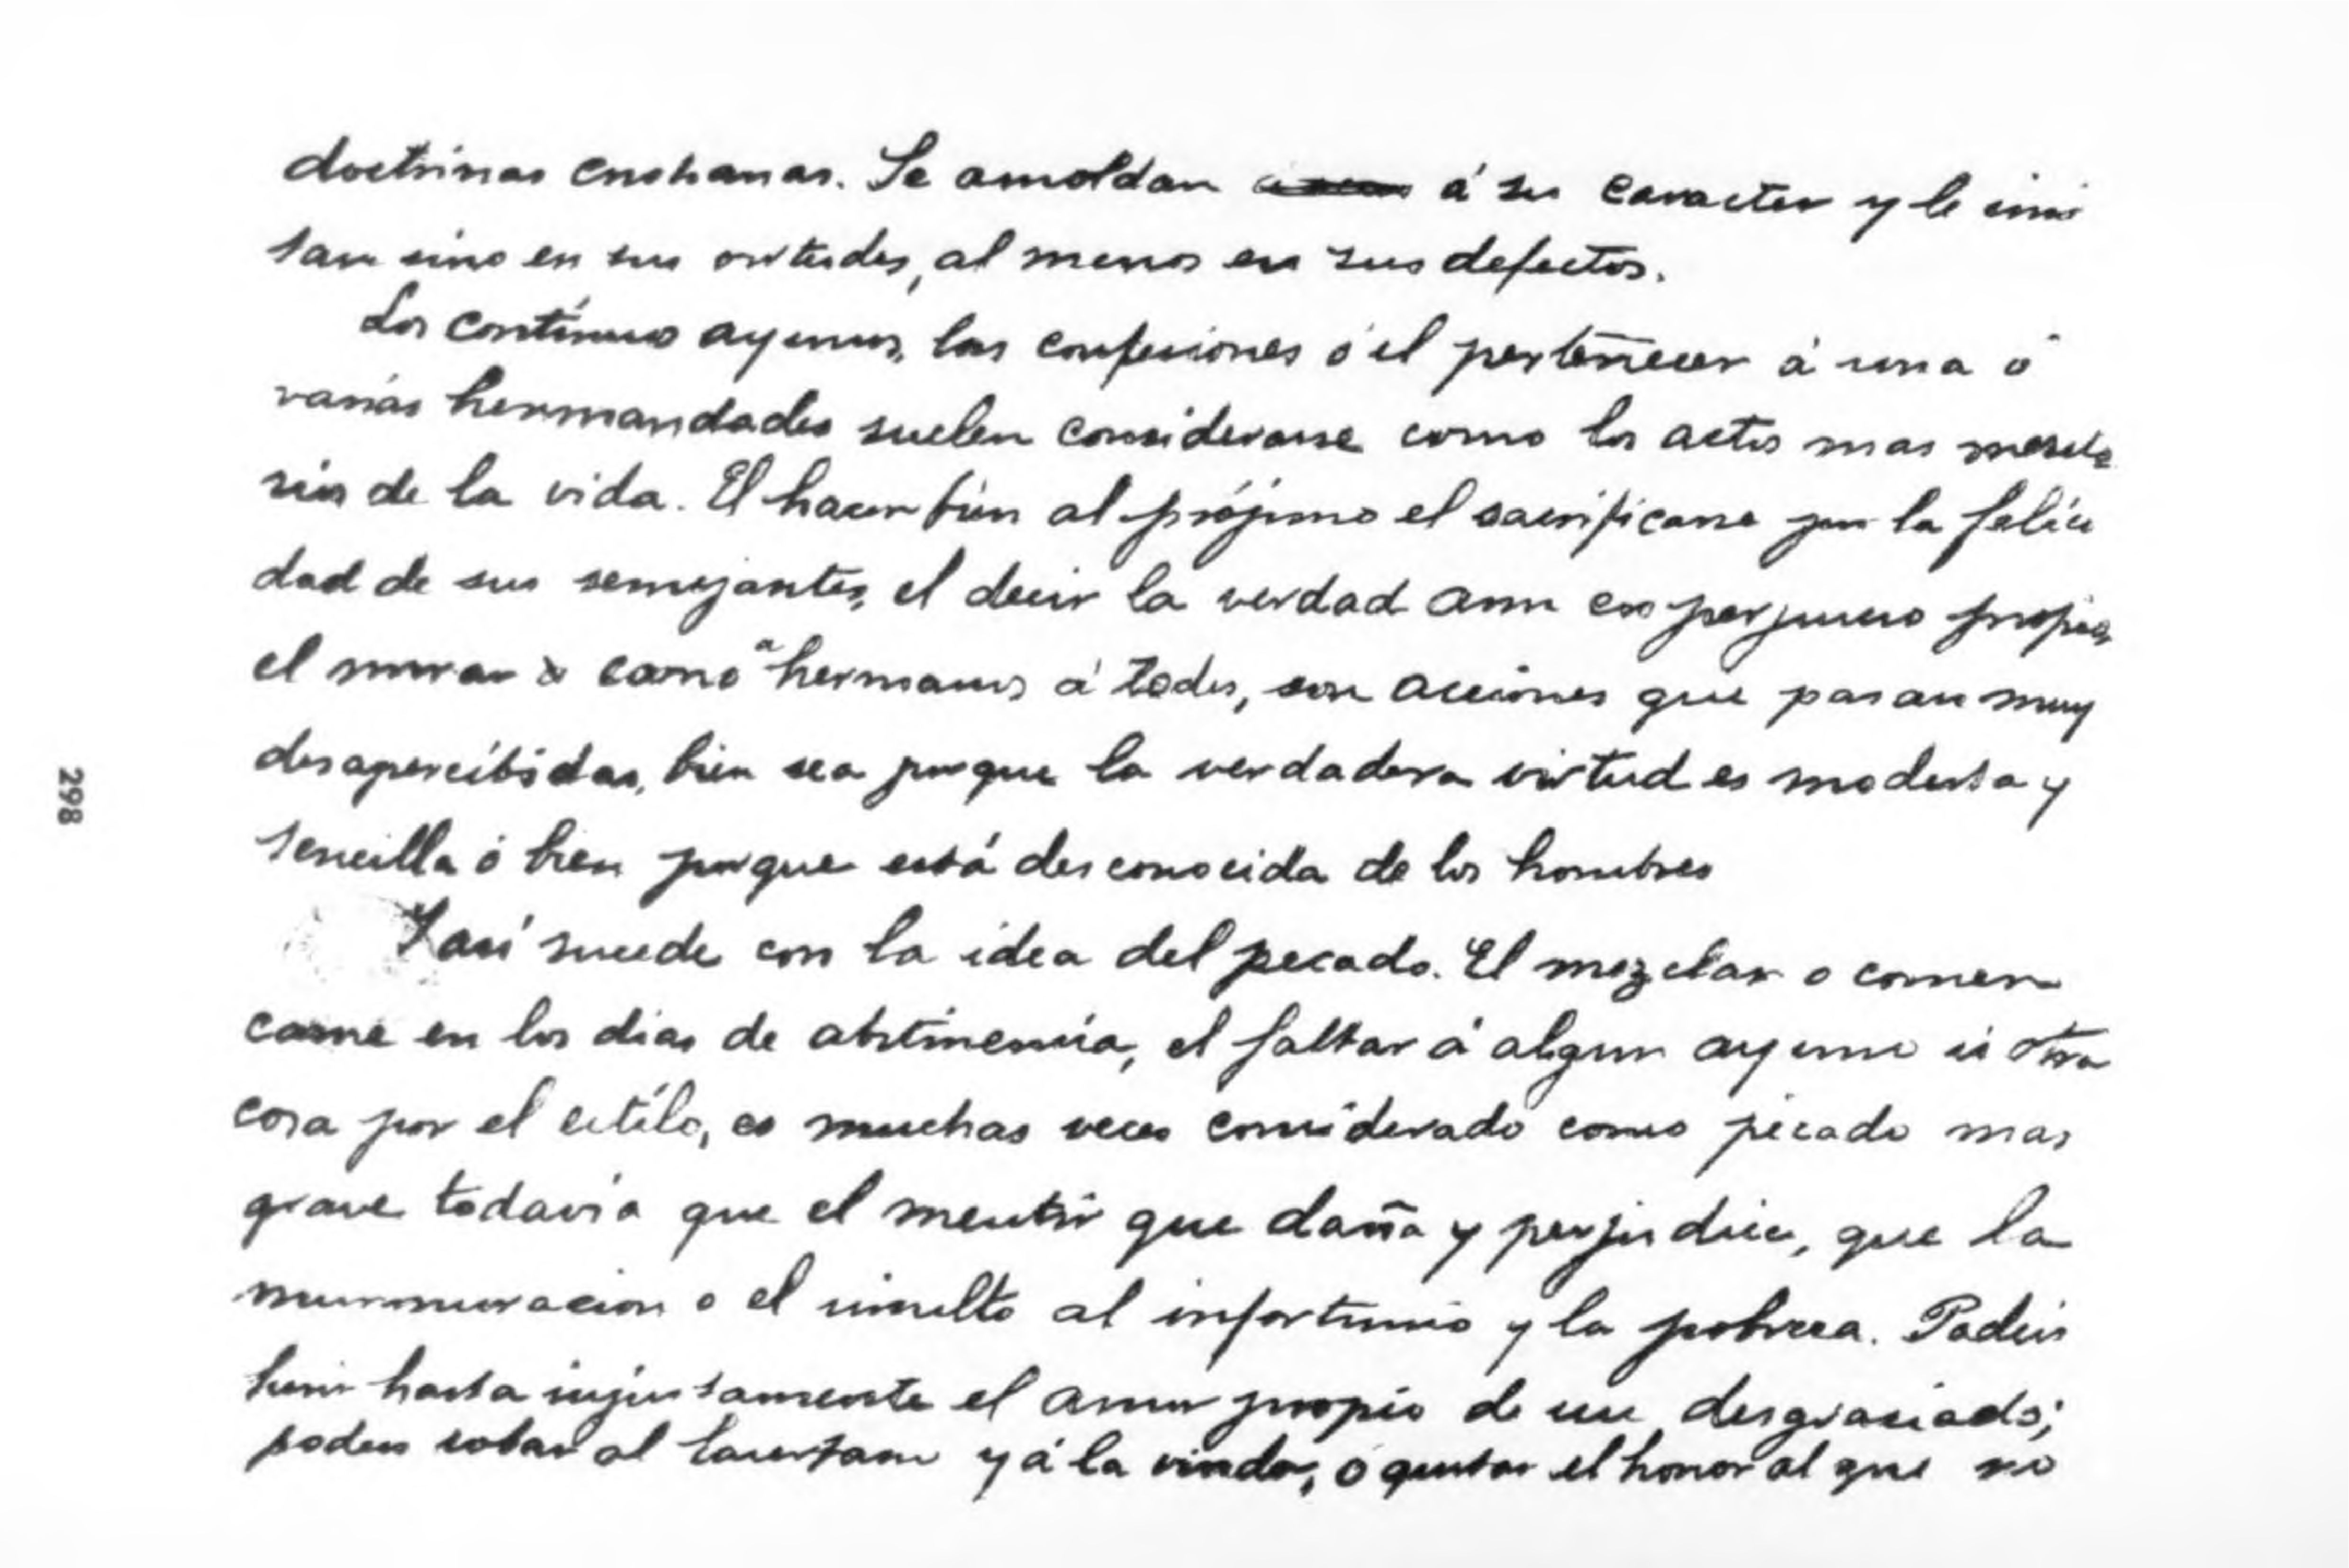 doctrinas cristianas. Se amoldan á su caracter y le imi
tan sino en sus virtudes, al menos en sus defectos.
Los contínuos ayunos, las confesiones ó el pertenecer á una ó
varias hermandades suelen considerarse como los actos mas merito
rios de la vida. El hacer bien al prójimo el sacrificarse por la felici
dad de sus semejantes, el decir la verdad aun con perjuicio propio,
el mirar como a hermanos á todos, son acciones que pasan muy
desapercibidas, bien sea porque la verdadera virtud es modesta y
sencilla ó bien porque está desconocida de los hombres
Y así sucede con la idea del pecado. El mezclar o comer
carne en los dias de abstinencia, el faltar á algun ayuno ú otra
cosa por el estilo, es muchas veces considerado como pecado mas
grave todavia que el mentir que daña y perjudica, que la
murmuracion o el insulto al infortunio y la pobreza. Podeis
herir hasta injustamente el amor propio de un desgraciado;
podeis robar al y á la viuda, ó quitar el honor al que no
298